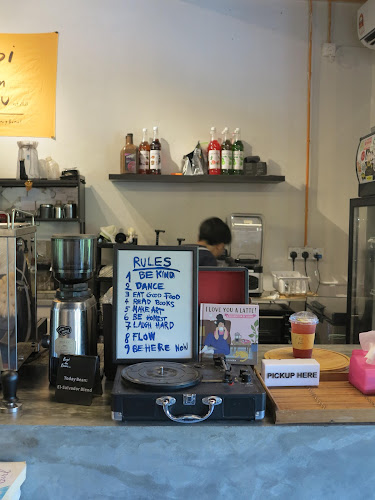 RULES
1 BE KIND
2 DANCE
3 EAT GOOD FOOD
4 READ BOOKS
5 MAKE ART
6 BE HONEST
7 LAUGH HARD
8 FLOW
9 BE HERE NOW
I LOVE YOU A LATTE!
PICKUP HERE
Today Bean:
El-Salvador Blend